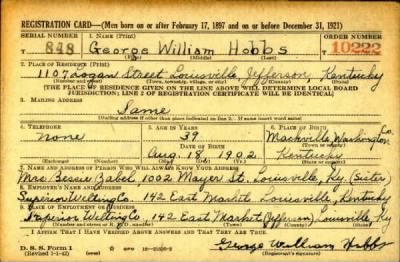 REGISTRATION CARD—(Men born on or after February 17, 1897 and on or before December 31, 1921)
SERIAL NUMBER 1. NAME (Print) ORDER NUMBER
T 848 George William Hobbs T 10222
(First) (Middle) (Last)
2. PLACE OF RESIDENCE (Print)
1107 Logan Street Louisville, Jefferson, Kentucky
(Number and street) (Town, township, village, or city) (County) (State)
[THE PLACE OF RESIDENCE GIVEN ON THE LINE ABOVE WILL DETERMINE LOCAL BOARD
JURISDICTION; LINE 2 OF REGISTRATION CERTIFICATE WILL BE IDENTICAL]
3. MAILING ADDRESS
Same
(Mailing address if other than place indicated on line 2. If same insert word same)
4. TELEPHONE 5. AGE IN YEARS 6. PLACE OF BIRTH
none 39 Mackville, Washington Co.
DATE OF BIRTH (Town or county)
Aug. 18 1902 Kentucky
(Exchange) (Number) (Mo.) (Day) (Yr.) (State or country)
7. NAME AND ADDRESS OF PERSON WHO WILL ALWAYS KNOW YOUR ADDRESS
Mrs. Bessie Zabel 1002 Mayer St. Louisville, Ky. (Sister)
8. EMPLOYER'S NAME AND ADDRESS
Superior Welting Co. 142 East Market Louisville, Kentucky
9. PLACE OF EMPLOYMENT OR BUSINESS
Superior Welting Co., 142 East Market (Jefferson) Louisville, Ky
I AFFIRM THAT I HAVE VERIFIED ABOVE ANSWERS AND THAT THEY ARE TRUE.
D. S. S. Form 1
(Revised 1-1-42) (over)
George William Hobbs